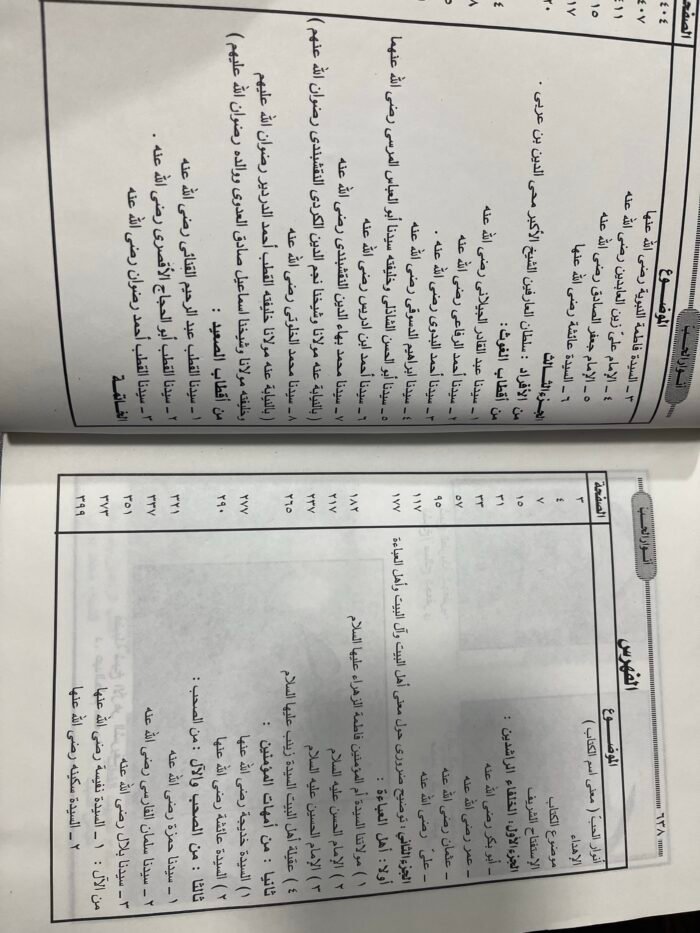 ٦٣٨
أنوار الحب
الفهرس
الموضوع الصفحة
أنوار الحب ( معنى اسم الكتاب ) ٣
الإهداء ٤
موضوع الكتاب ٧
الإستفتاح الشريف ١٥
الجزء الأول : الخلفاء الراشدين : ٣١
ـ أبو بكر رضى الله عنه ٣٣
ـ عمر رضى الله عنه ٥٧
ـ عثمان رضى الله عنه ٩٥
ـ علىّ رضى الله عنه ١١٧
الجزء الثاني : توضيح ضرورى حول معنى أهل البيت وآل البيت وأهل العباءة ١٧٧
أولا : أهل العباءة :
١ ) مولاتنا السيدة أم المؤمنين فاطمة الزهراء عليها السلام ١٨٢
٢ ) الإمام الحسن عليه السلام ٢١٧
٣ ) الإمام الحسين عليه السلام ٢٣٧
٤ ) عقيلة أهل البيت السيدة زينب عليها السلام ٢٦٥
ثانيا : من أمهات المؤمنين :
١) السيدة خديجة رضى الله عنها ٢٧٧
٢ ) السيدة عائشة رضى الله عنها ٢٩٠
ثالثا : من الصحب والآل : من الصحب :
١ ـ سيدنا حمزة رضى الله عنه ٣٢١
٢ ـ سيدنا سلمان الفارسى رضى الله عنه ٣٣٧
٣ ـ سيدنا بلال رضى الله عنه ٣٥١
من الآل : ١ ـ السيدة نفيسة رضى الله عنها ٣٧٣
٢ ـ السيدة سكينه رضى الله عنها ٣٩٩
أنوار الحب
الموضوع الصفحة
٣ ـ السيدة فاطمة النبوية رضى الله عنها ٤٠٤
٤ ـ الإمام على زين العابدين رضى الله عنه ٤٠٧
٥ ـ الإمام جعفر الصادق رضى الله عنه ٤١١
٦ ـ السيدة عائشة رضى الله عنها
الجزء الثالث
من الأفراد : سلطان العارفين الشيخ الأكبر محى الدين بن عربى .
من أقطاب الغوث :
١ ـ سيدنا عبد القادر الجيلانى رضى الله عنه
٢ ـ سيدنا أحمد الرفاعى رضى الله عنه
٣ ـ سيدنا أحمد البدوى رضى الله عنه .
٤ ـ سيدنا ابراهيم الدسوقى رضى الله عنه
٥ ـ سيدنا أبو الحسن الشاذلى وخليفته سيدنا أبو العباس المرسى رضى الله عنهما
٦ ـ سيدنا أحمد ابن ادريس رضى الله عنه
٧ ـ سيدنا محمد بهاء الدين النقشبندى رضى الله عنه
( بالنيابة عنه مولانا وشيخنا نجم الدين الكردى النقشبندى رضوان الله عنهم )
٨ ـ سيدنا محمد الخلوتى رضى الله عنه
( بالنيابة عنه مولانا خليفته القطب أحمد الدردير رضوان الله عليهم
وخليفته مولانا وشيخنا اسماعيل صادق العدوى ووالده رضوان الله عليهم )
من أقطاب الصعيد :
١ ـ سيدنا القطب عبد الرحيم القنائى رضى الله عنه
٢ ـ سيدنا القطب أبو الحجاج الأقصرى رضى الله عنه .
٣ ـ سيدنا القطب أحمد رضوان رضى الله عنه
الخاتمة